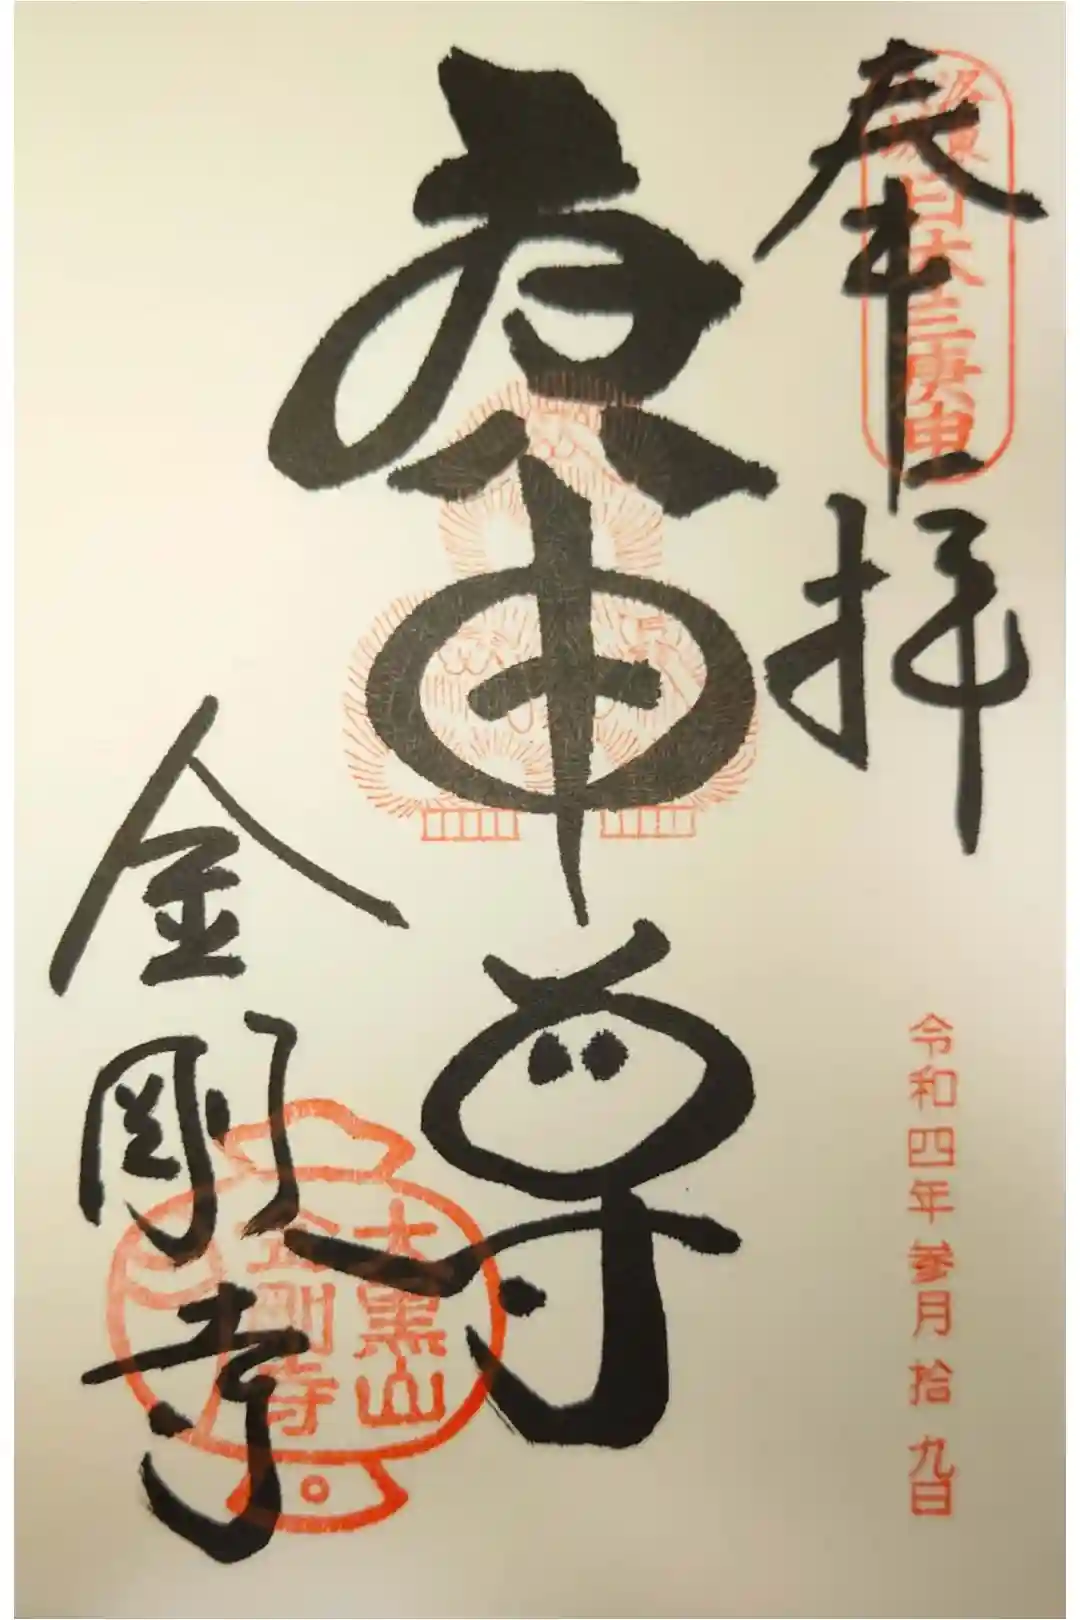 奉拝
日本三庚申
令和四年参月拾九日
庚申尊
金剛寺
大黒山
金剛寺